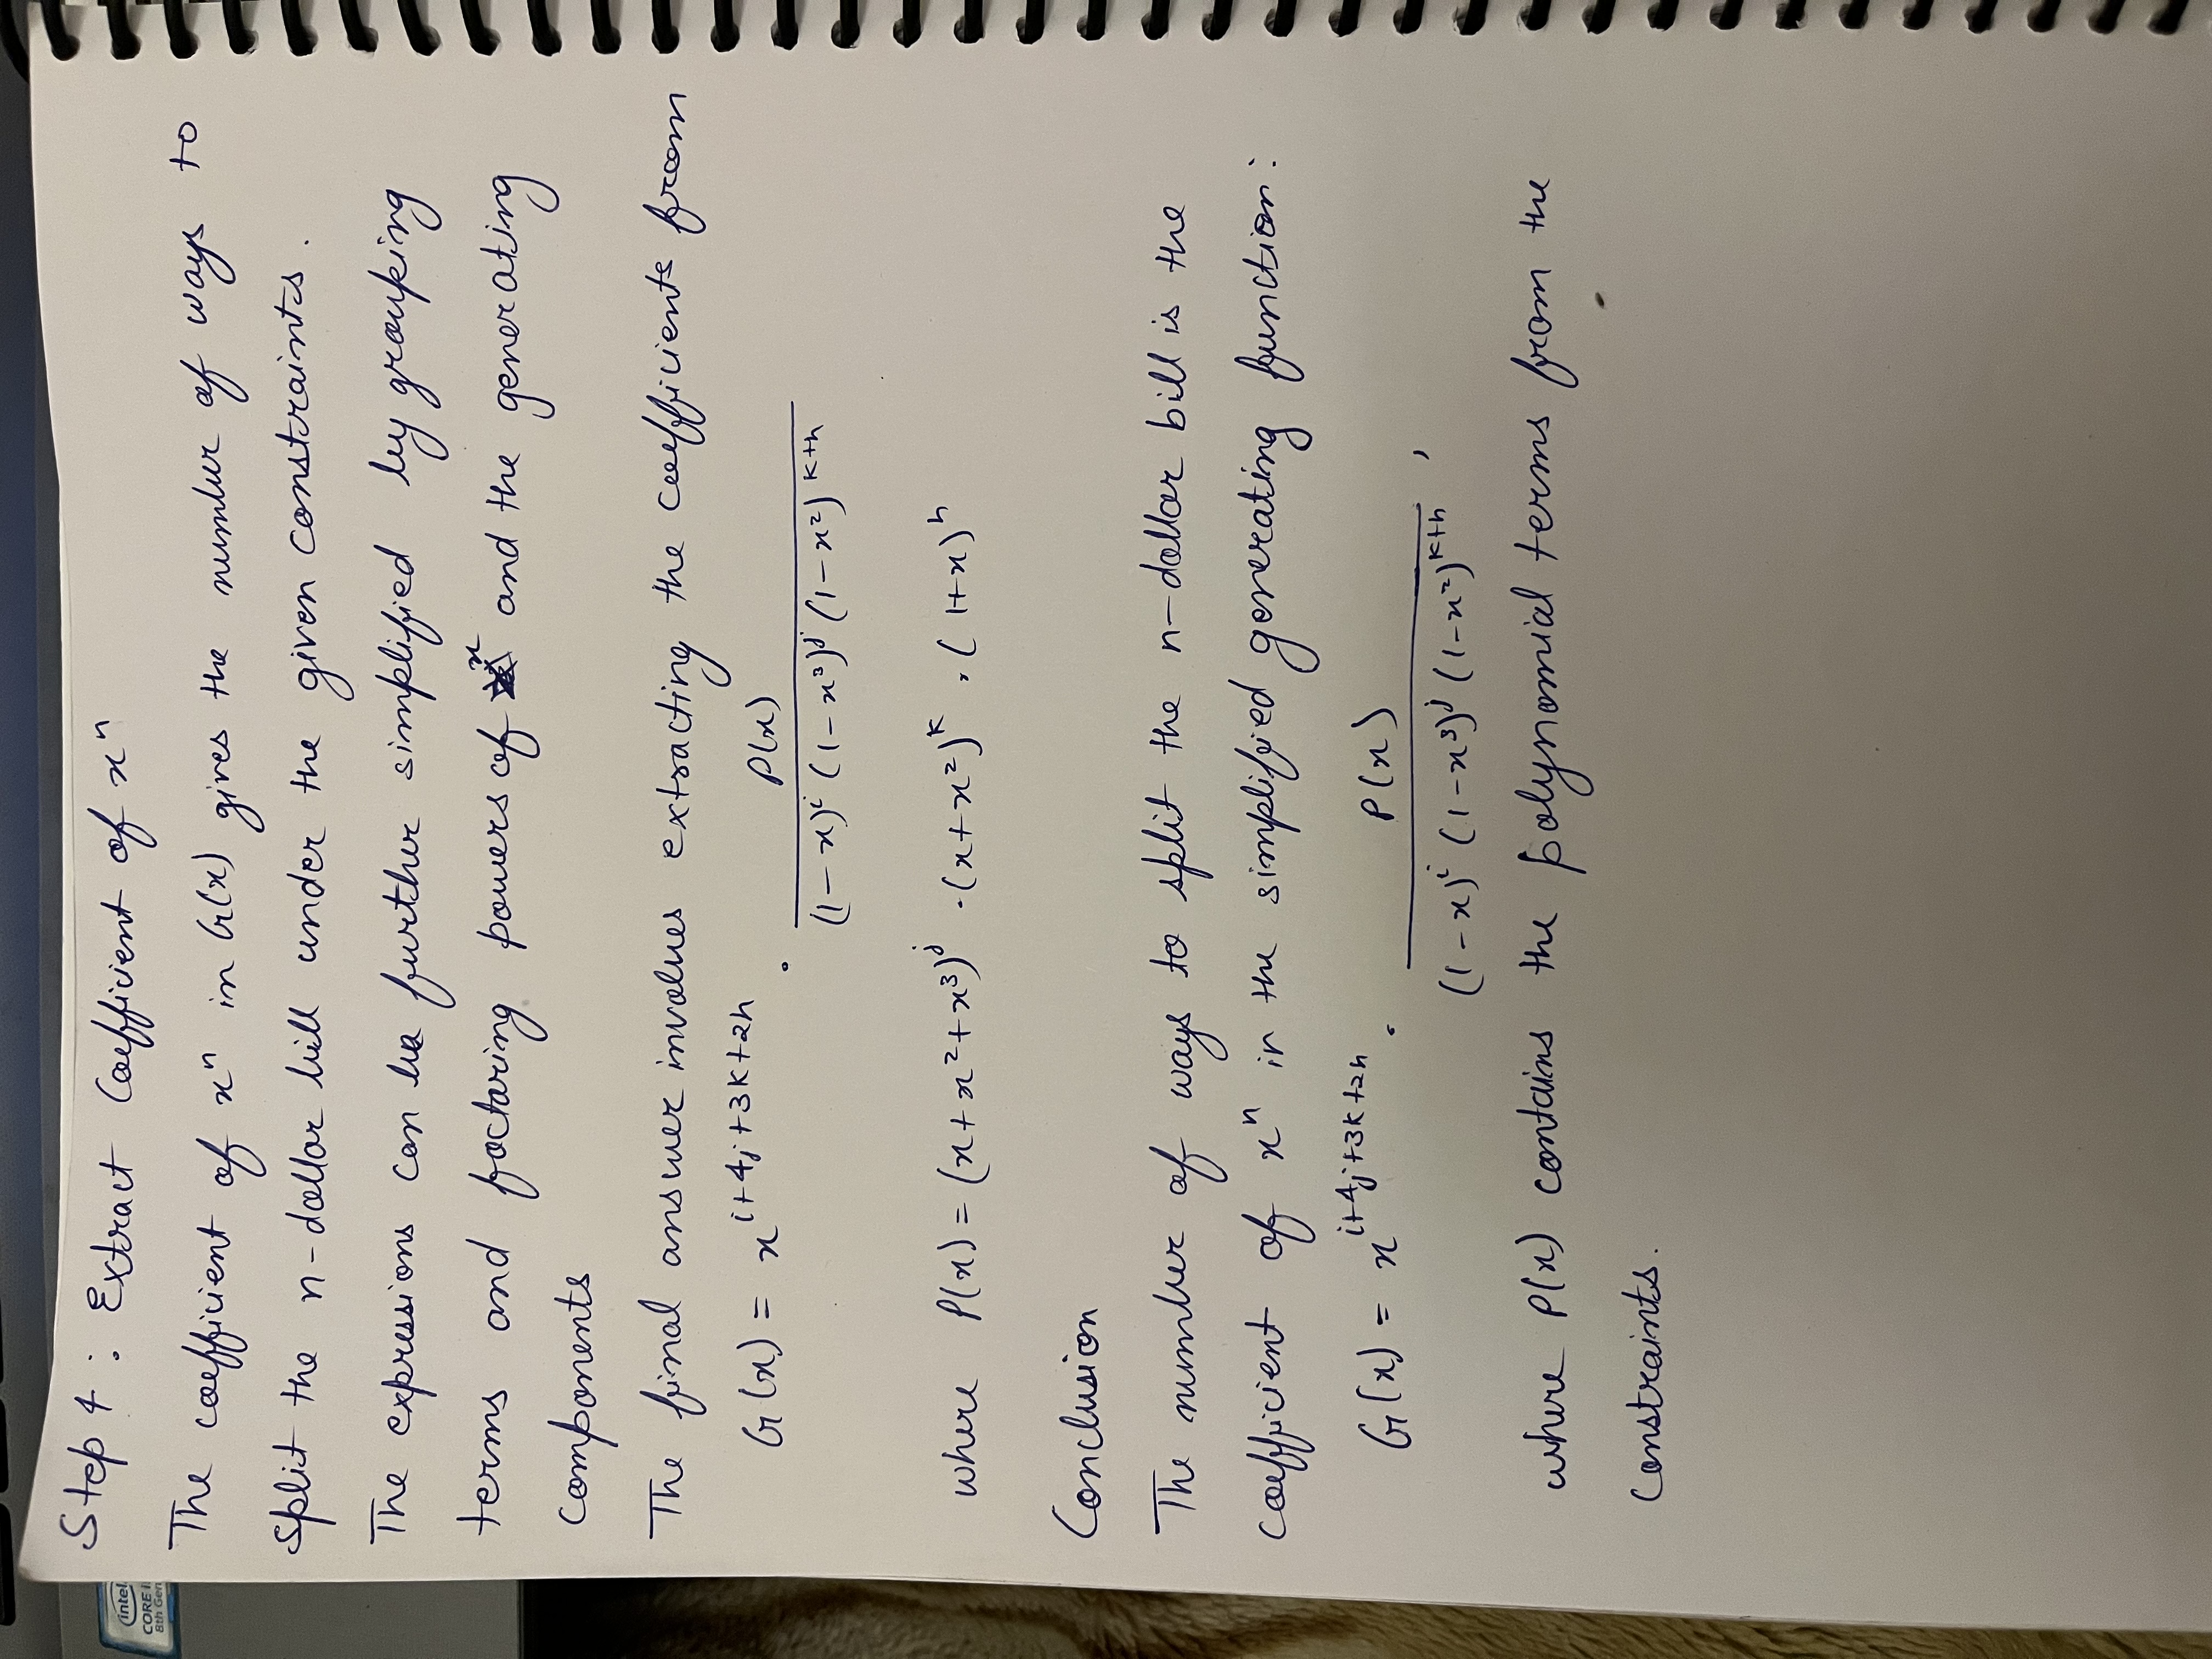 Step 4 : Extract Coefficient of xⁿ
The coefficient of xⁿ in G(x) gives the number of ways to
split the n-dollar bill under the given constraints.
The expressions can be further simplified by grouping
terms and factoring powers of x and the generating
components
The final answer involves extracting the coefficients from
G(x) = x^(i+4j+3k+2h) · P(x) / ((1-x)^i (1-x³)^j (1-x²)^(k+h))
where P(x) = (x+x²+x³)^j · (x+x²)^k · (1+x)^h
Conclusion
The number of ways to split the n-dollar bill is the
coefficient of xⁿ in the simplified generating function:
G(x) = x^(i+4j+3k+2h) · P(x) / ((1-x)^i (1-x³)^j (1-x²)^(k+h)) ,
where P(x) contains the polynomial terms from the
constraints.
intel
CORE i
8th Gen